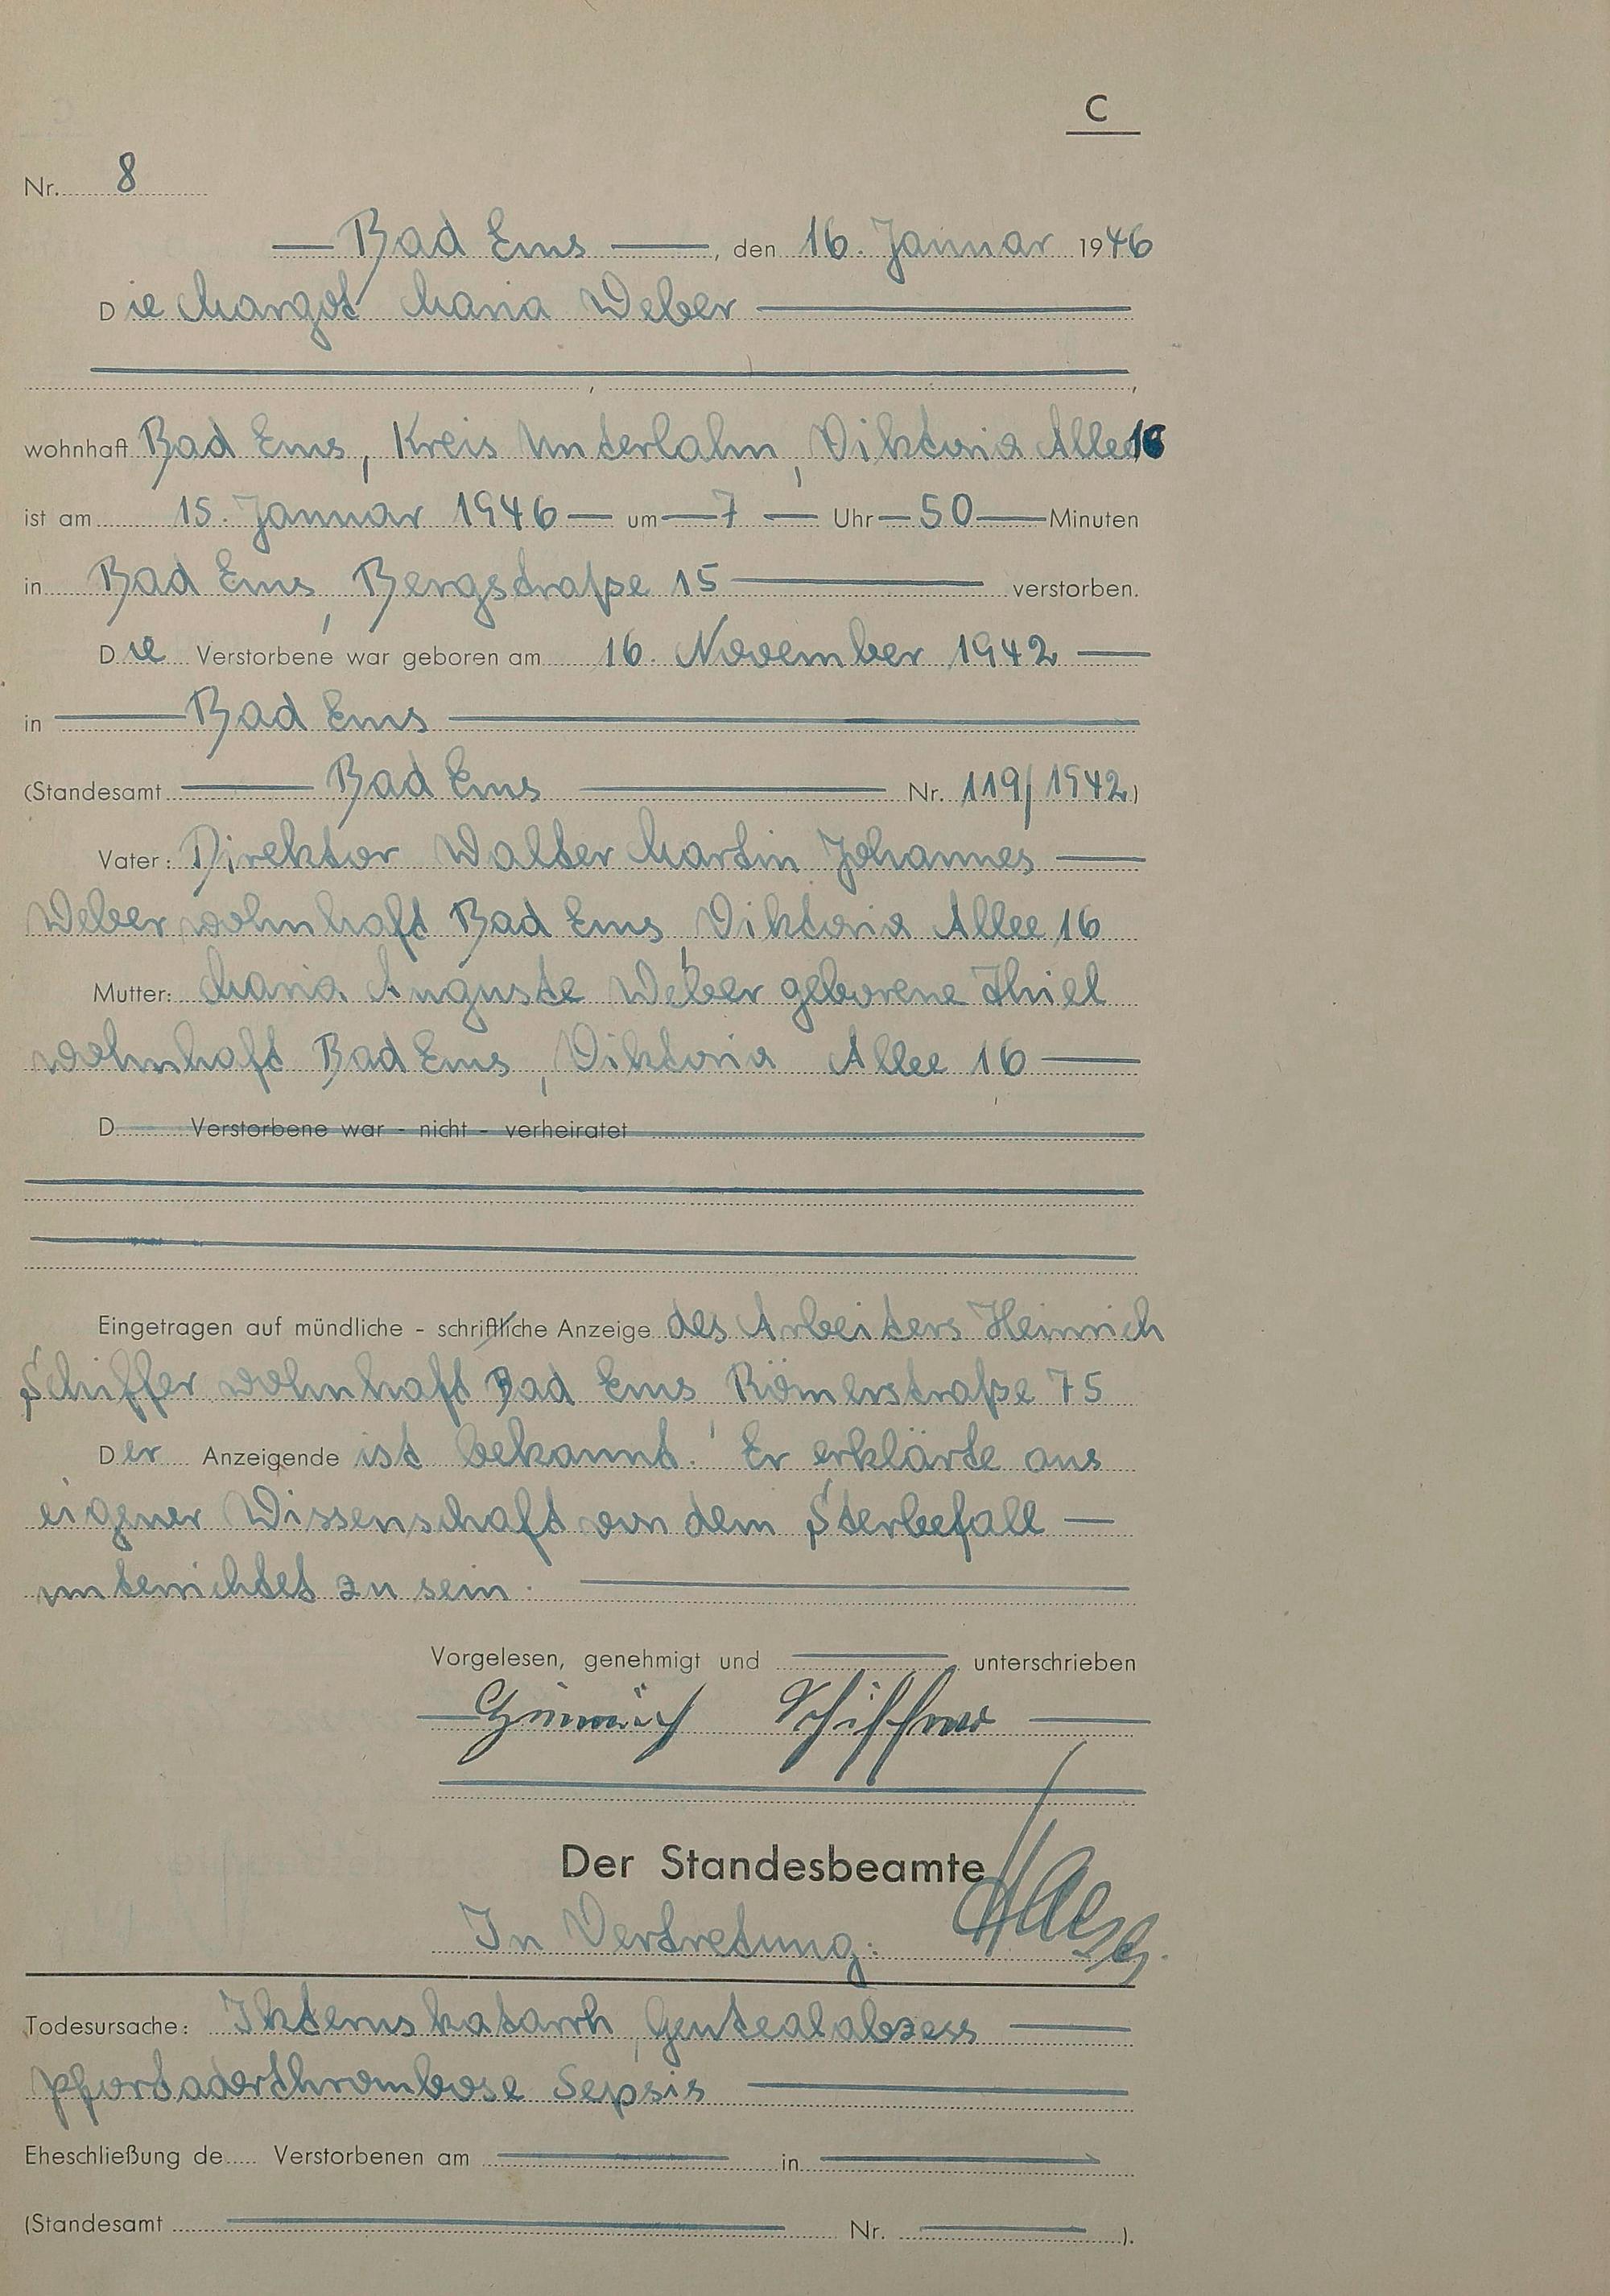 C
Nr. 8
Bad Ems, den 16. Januar 1946
Die Margot Maria Weber
wohnhaft Bad Ems, Kreis Unterlahn, Viktoria Allee 16
ist am 15. Januar 1946 um 7 Uhr 50 Minuten
in Bad Ems, Bergstraße 15 verstorben.
Die Verstorbene war geboren am 16. November 1942
in Bad Ems
(Standesamt Bad Ems Nr. 119/1942)
Vater: Direktor Walter Martin Johannes
Weber wohnhaft Bad Ems, Viktoria Allee 16
Mutter: Maria Auguste Weber geborene Thiel
wohnhaft Bad Ems, Viktoria Allee 16
D Verstorbene war - nicht - verheiratet
Eingetragen auf mündliche - schriftliche Anzeige des Arbeiters Heinrich
Schiffer wohnhaft Bad Ems Römerstraße 75
Der Anzeigende ist bekannt. Er erklärte aus
eigener Wissenschaft von dem Sterbefall
unterrichtet zu sein.
Vorgelesen, genehmigt und unterschrieben
Heinrich Schiffer
Der Standesbeamte
In Vertretung:
Todesursache: Ikteruskatarrh, abszess
Pfortaderthrombose Sepsis
Eheschließung de Verstorbenen am in
(Standesamt Nr. ).